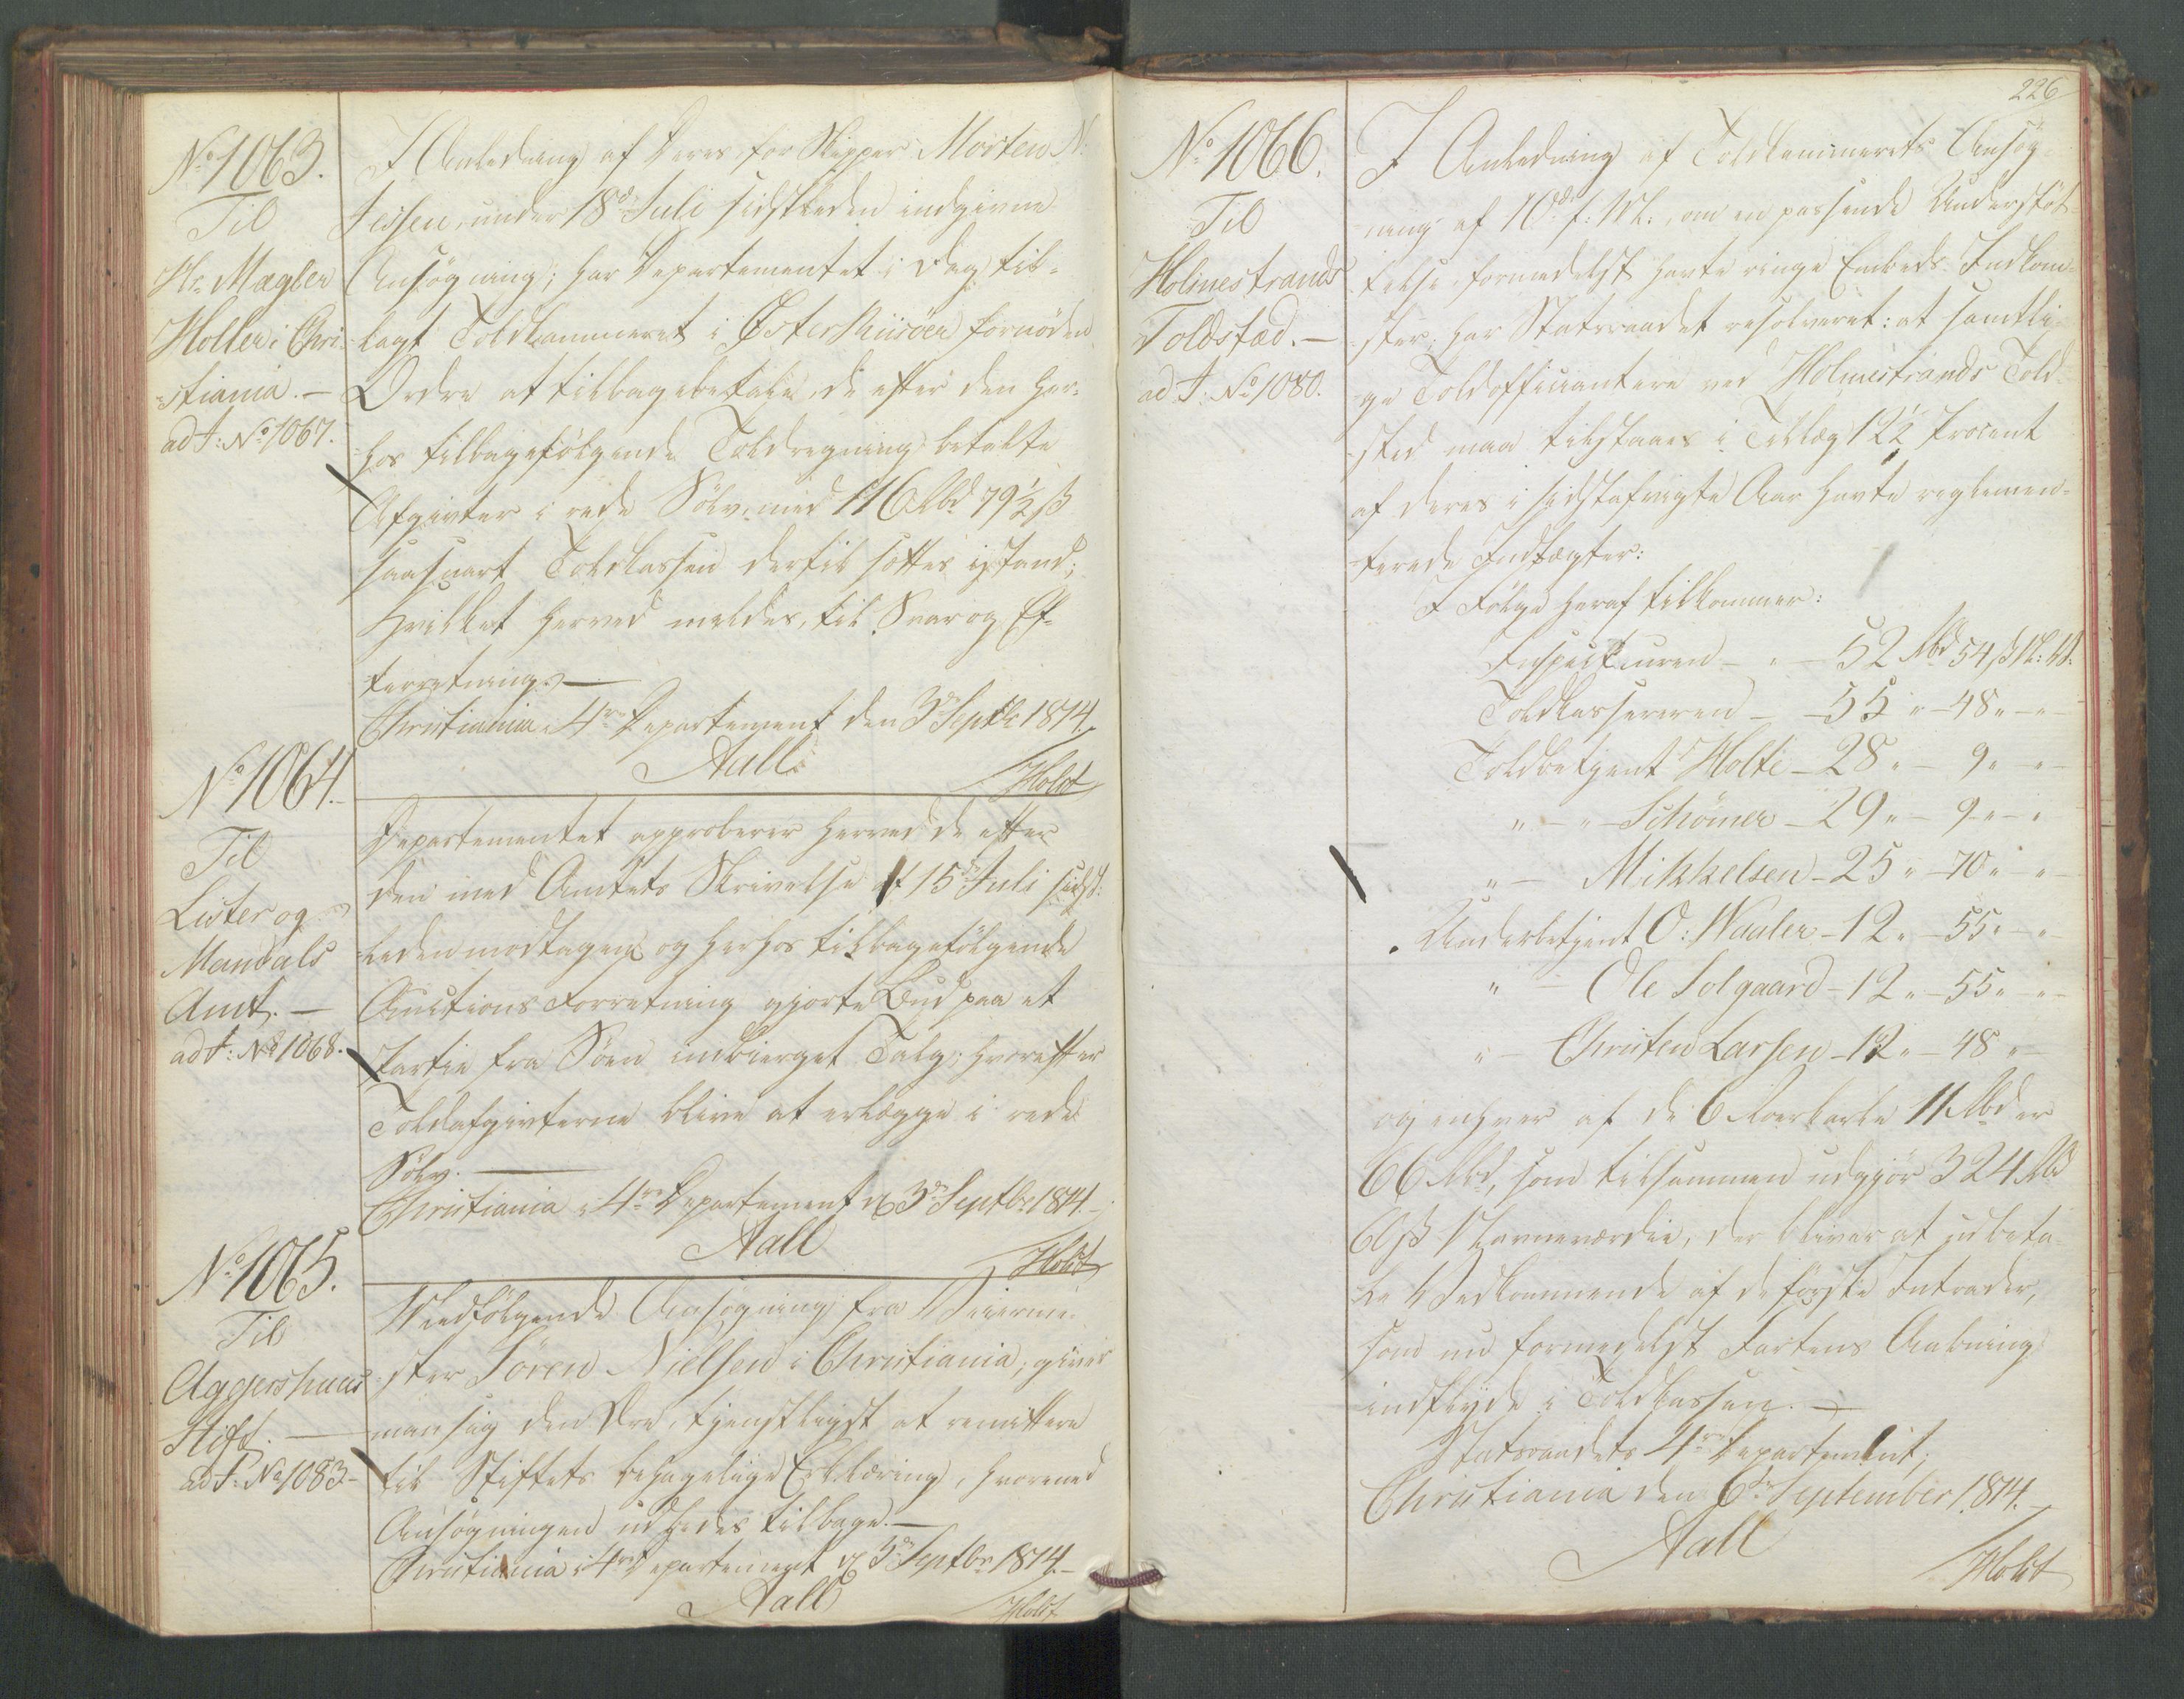 No 1063.
Til
Hr. Mægler
Møller i Chri-
stiania. —
ad J: No 1067.
I Anledning af Deres for Skipper Morten N.
Jessen, under 18de Juli sidstleden indgivne
Ansøgning; har Departementet i Dag til-
lagt Toldkammeret i Øster Riisöer fornöden
Ordre at tilbagebetale, de efter den her-
hos tilbagefölgende Toldregning betalte
Afgivter i rede Sölv, med 116 Rbd 79 1/2 s
saasnart Toldkassen dertil sættes istand;
Hvilket herved meldes, til Svar og Ef-
terretning. —
Christiania i 4de Departement den 3de Septbr 1814.
Aall
Holst
No 1064.
Til
Lister og
Mandals
Amt. —
ad J: No 1068.
Departementet approberer herved de efter
den med Amtets Skrivelse af 15de Juli sidst-
leden modtagen og herhos tilbagefölgende
Auctions Forretning gjorte Bud paa et
Partie fra Söen indbierget Talg; hvorefter
Toldafgivterne blive at erlægge i rede
Sölv. —
Christiania i 4de Departement d 3de Septbr 1814. —
Aall
Holst
No 1065.
Til
Aggershuus
Stift. —
ad J: No 1083 -
Medfölgende Ansögning fra
ster Sören Nielsen i Christiania, giver
man sig den Ære, tjenstligst at remittere
til Stiftets behagelige Erklæring, hvormed
Ansögningen udbedes tilbage. —
Christiania i 4de Departement d 3de Septbr 1814. —
Aall
Holst
226
No 1066.
Til
Holmestrands
Toldsted. —
ad J: No 1080.
I Anledning af Toldkammerets Ansög-
ning af 16de f: M:, om en passende Understöt-
telse formedelst havte ringe Embeds Indkom-
ster, har Statsraadet resolveret: at samtli-
ge Toldofficianter ved Holmestrands Told-
sted maa tilstaaes i Tillæg 12 1/2 Procent
af deres i sidstafvigte Aar havte reglemen-
terede Indtægter:
I Fölge heraf tilkommer:
Inspecteuren - " - 52 Rbd 54 s N: V:
Toldkassereren - 55 " - 48 " - " -
Toldbetjent Holte - 28 " - 9 " - " -
" - " - Schömer - 29 " - 9 " - "
" - Mikkelsen - 25 " - 70 " - " -
Underbetjent O: Waaler - 12 " - 55 " - " -
" - Ole Solgaard - 12 " - 55 " " -
" - Christen Larsen - 12 " - 48 " -
og enhver af de 6 Roerkarle 11 Rbd er
66 Rbd, som tilsammen udgjör 324 Rbd
60 s Navneværdie, der bliver at udbeta-
le Vedkommende af de förste Intrader,
som nu formedelst Fartens Aabning
indflyde i Toldkassen. —
Statsraadets 4de Departement,
Christiania den 6de September 1814. —
Aall
Holst